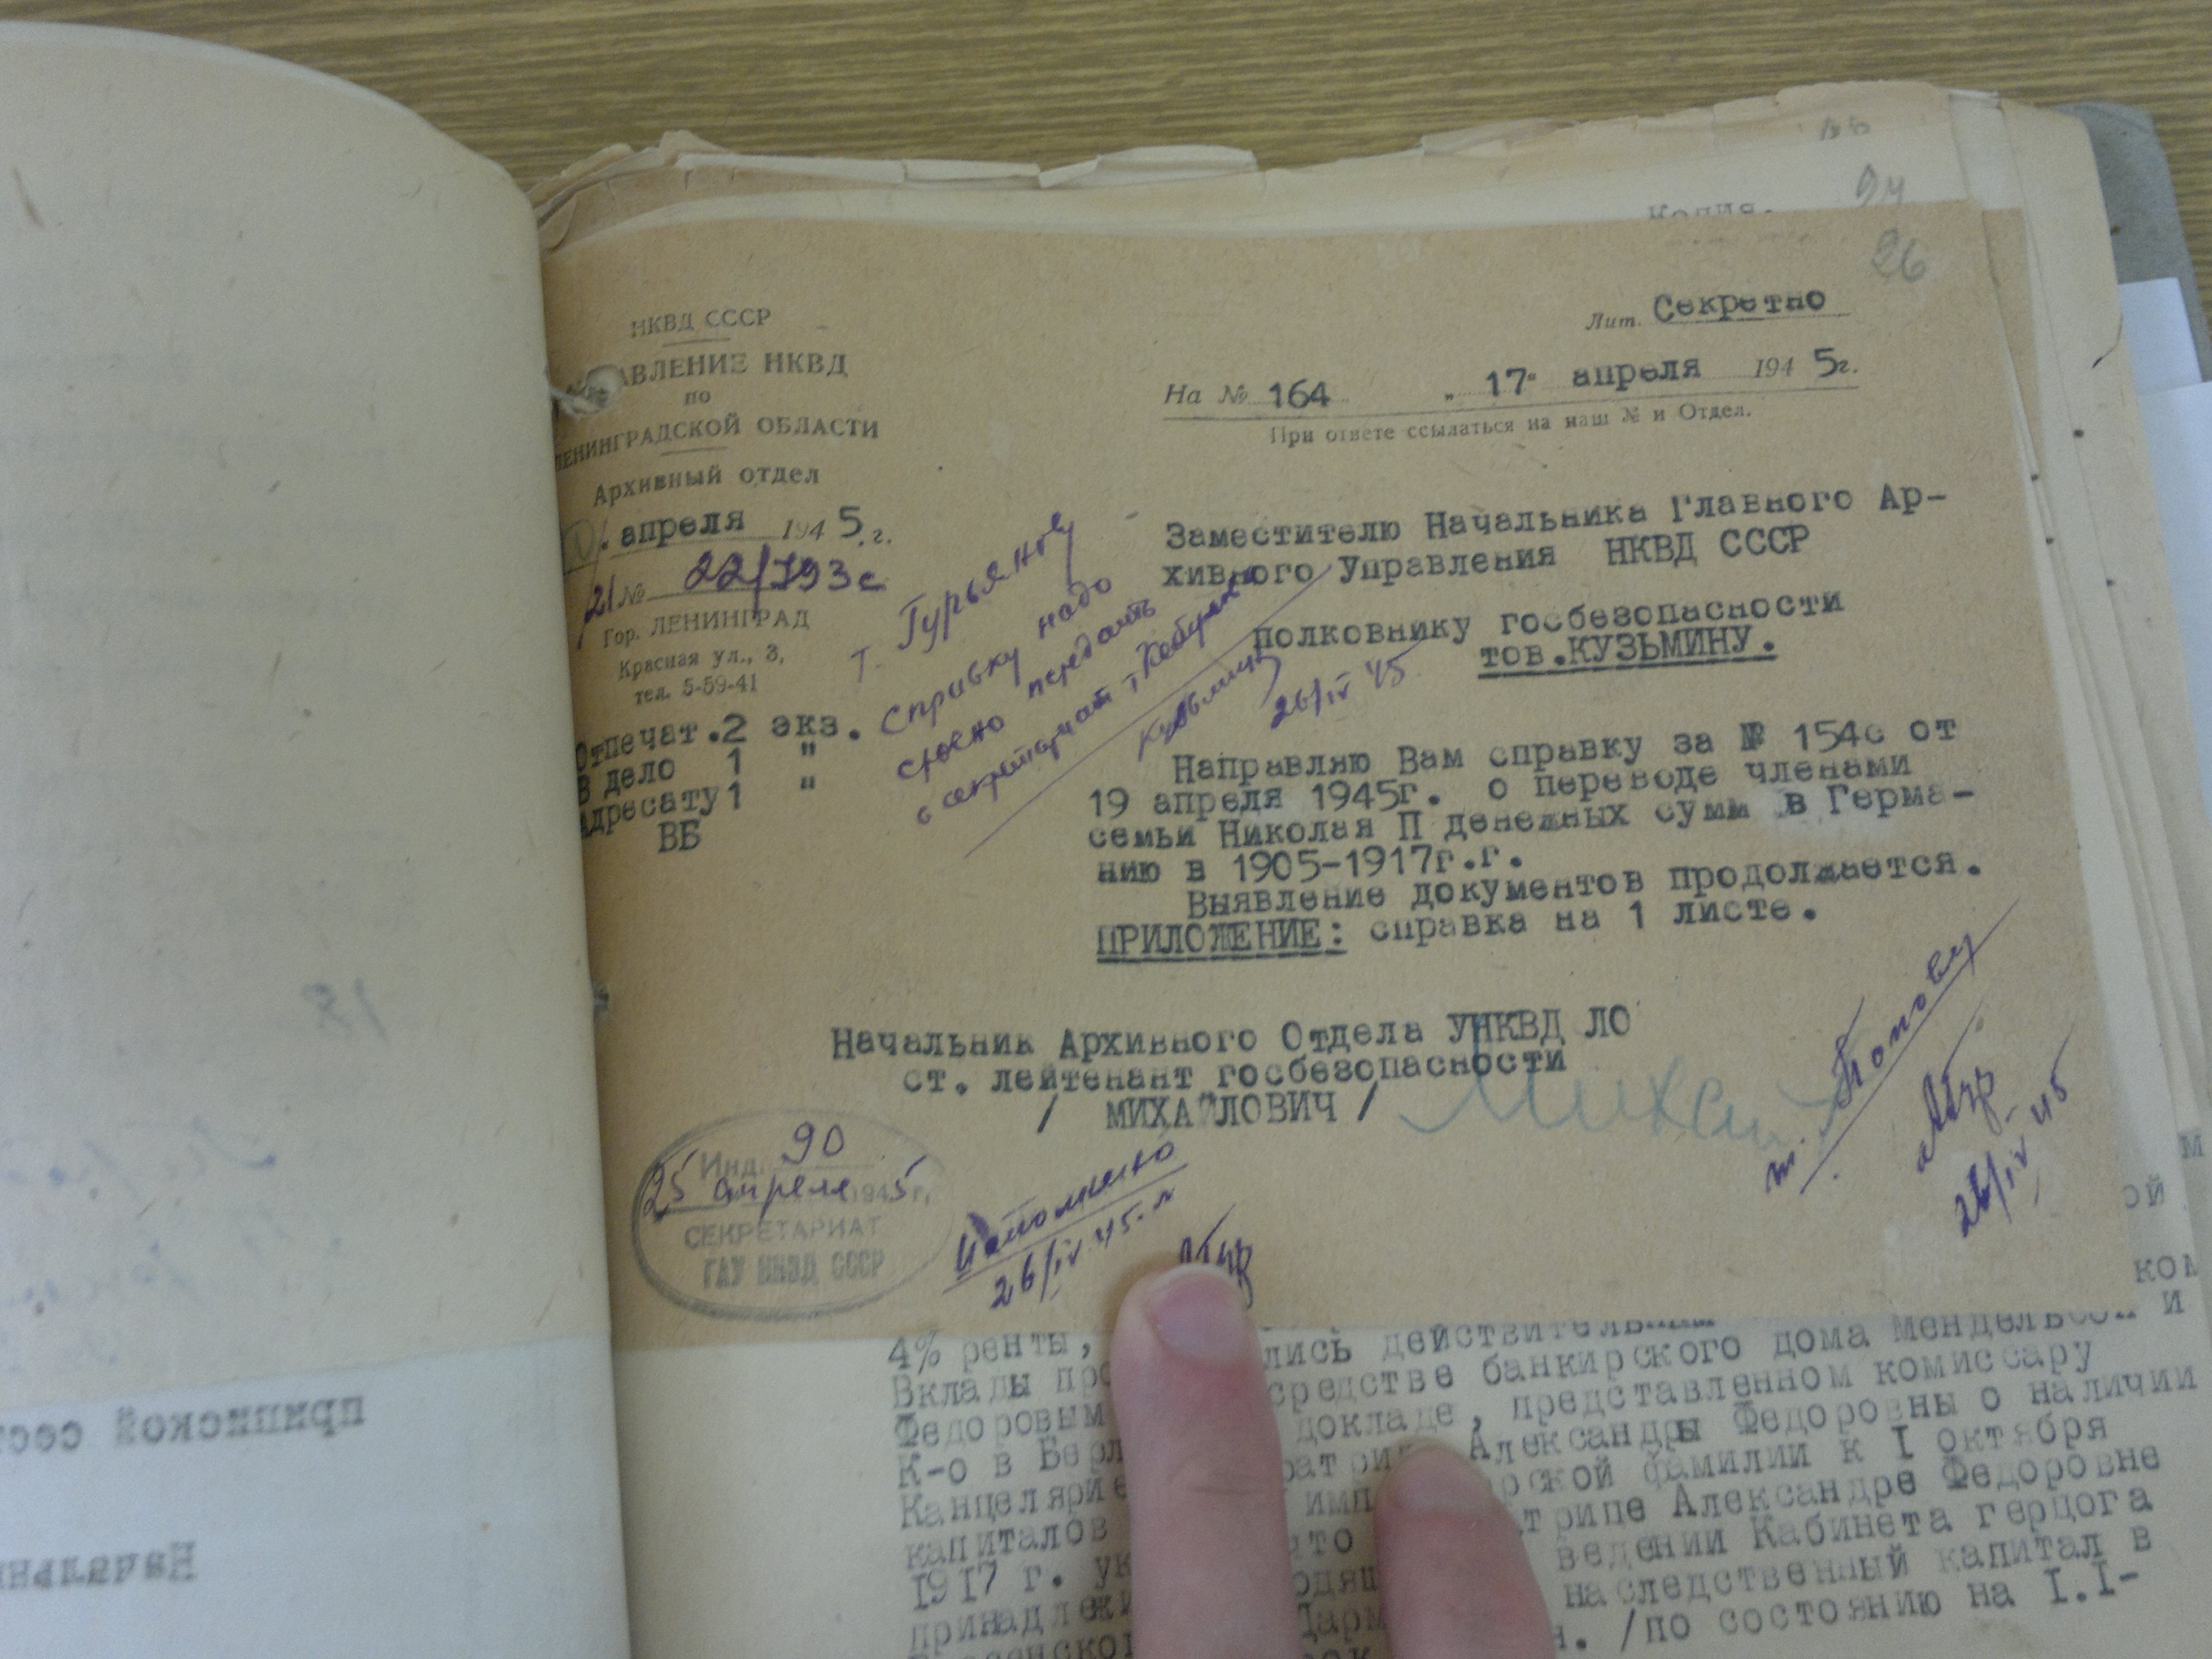 Копия.
24
26
НКВД СССР
УПРАВЛЕНИЕ НКВД
по
ЛЕНИНГРАДСКОЙ ОБЛАСТИ
Архивный отдел
апреля 1945.г.
21 № 22/793с
Гор. ЛЕНИНГРАД
Красная ул., 3,
тел. 5-59-41
Отпечат.2 экз.
В дело 1 "
Адресату 1 "
ВБ
Лит. Секретно
На № 164 „ 17" апреля 1945г.
При ответе ссылаться на наш № и Отдел.
Заместителю Начальника Главного Ар-
хивного Управления НКВД СССР
полковнику госбезопасности
тов.КУЗЬМИНУ.
т. Гурьянову
Справку надо
срочно передать
в секретариат т.
Кузьмин
26/IV 45
Направляю Вам справку за № 154с от
19 апреля 1945г. о переводе членами
семьи Николая П денежных сумм в Герма-
нию в 1905-1917г.г.
Выявление документов продолжается.
ПРИЛОЖЕНИЕ: справка на 1 листе.
Начальник Архивного Отдела УНКВД ЛО
ст. лейтенант госбезопасности
/ МИХАЙЛОВИЧ /
т. Попову
26/IV 45
Инд. 90
25 апреля 1945 г.
СЕКРЕТАРИАТ
ГАУ НКВД СССР
Исполнено
26/IV 45.г
4% ренты, лись действительным
Вклады средстве банкирского дома Мендельсон и
Федоровым докладе, представленном комиссару
К-о в Александры Федоровны о наличии
фамилии к I октября
капиталов Александре Федоровне
1917 г. ведении Кабинета герцога
наследственный капитал в
/по состоянию на I.I-
18
приписной